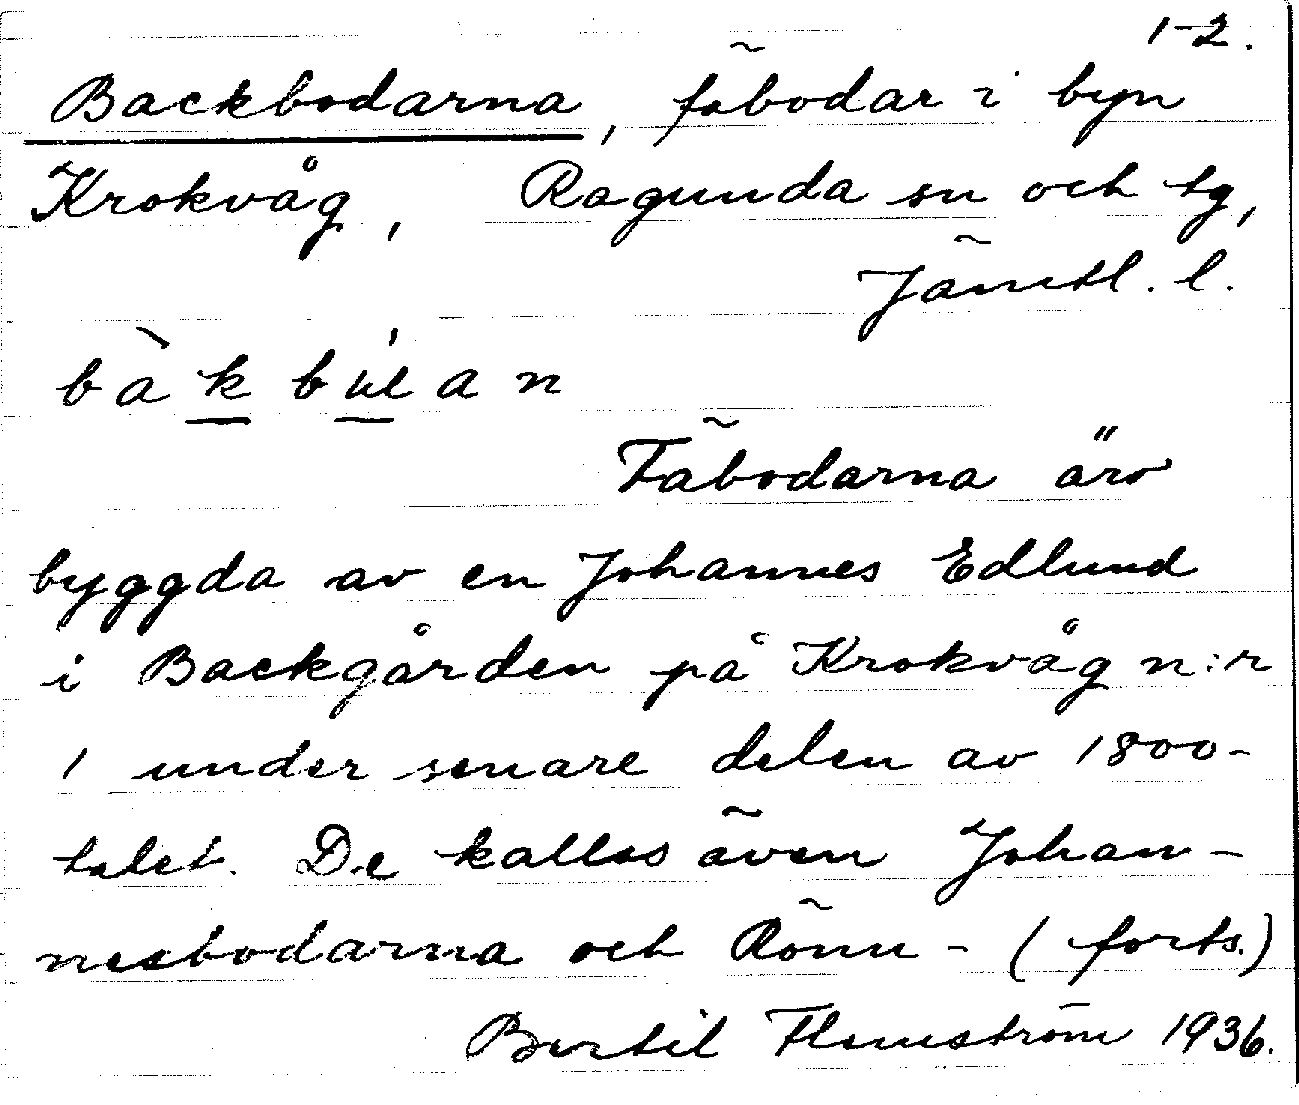 1-2.
Backbodarna, fäbodar i byn
Krokvåg, Ragunda sn och tg,
Jämtl. l.
bàkbúlan
Fäbodarna äro
byggda av en Johannes Edlund
i Backgården på Krokvåg n:r
1 under senare delen av 1800-
talet. De kallas även Johan-
nesbodarna och Rönn- (forts.)
Bertil Flemström 1936.